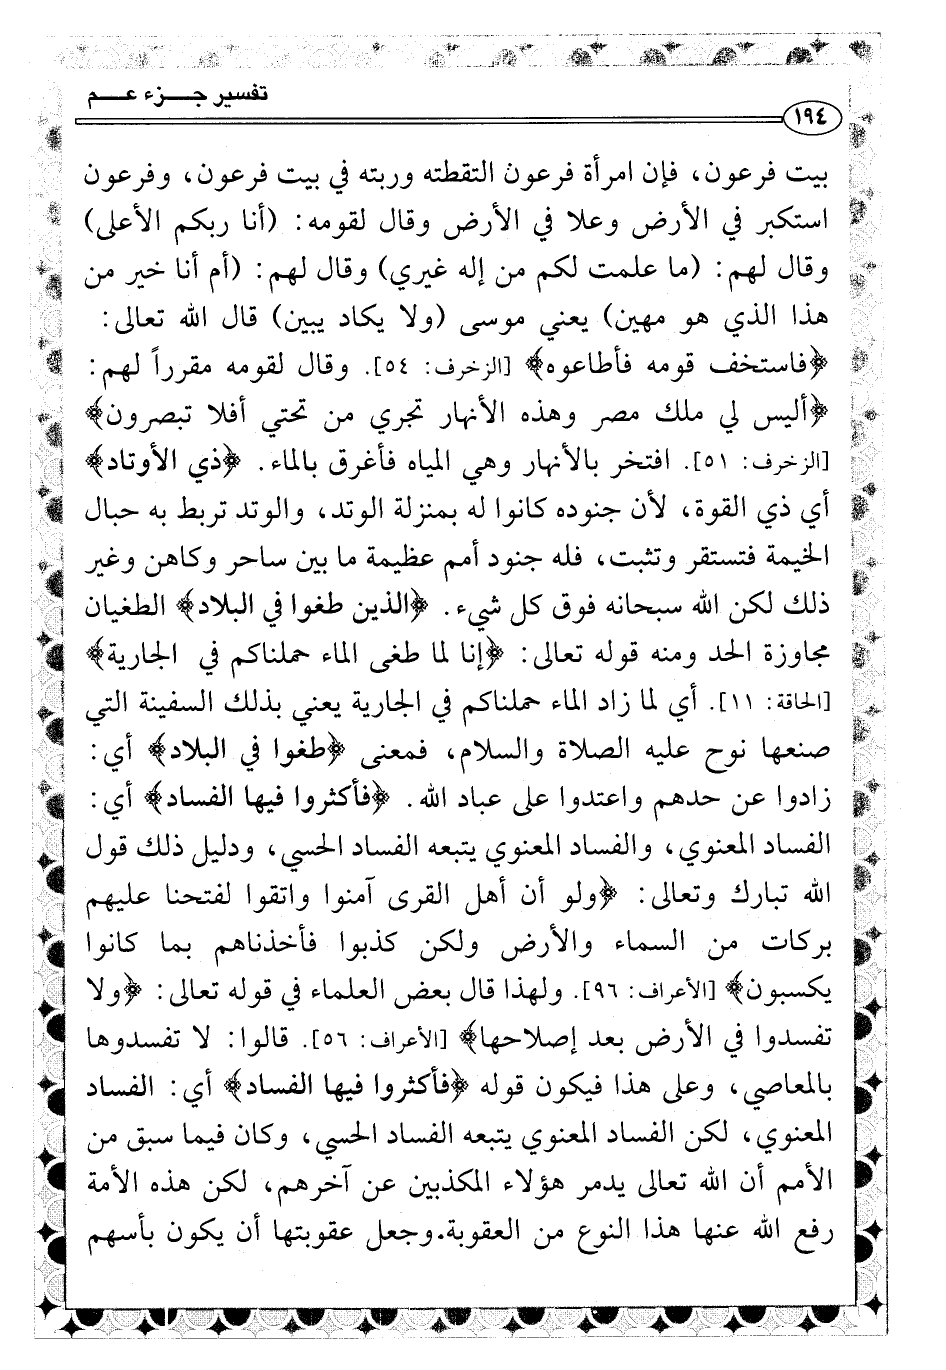 تفسير جزء عم
١٩٤
بيت فرعون، فإن امرأة فرعون التقطته وربته في بيت فرعون، وفرعون
استكبر في الأرض وعلا في الأرض وقال لقومه: (أنا ربكم الأعلى)
وقال لهم: (ما علمت لكم من إله غيري) وقال لهم: (أم أنا خير من
هذا الذي هو مهين) يعني موسى (ولا يكاد يبين) قال الله تعالى:
﴿فاستخف قومه فأطاعوه﴾ [الزخرف: ٥٤]. وقال لقومه مقرراً لهم:
﴿أليس لي ملك مصر وهذه الأنهار تجري من تحتي أفلا تبصرون﴾
[الزخرف: ٥١]. افتخر بالأنهار وهي المياه فأغرق بالماء. ﴿ذي الأوتاد﴾
أي ذي القوة، لأن جنوده كانوا له بمنزلة الوتد، والوتد تربط به حبال
الخيمة فتستقر وتثبت، فله جنود أمم عظيمة ما بين ساحر وكاهن وغير
ذلك لكن الله سبحانه فوق كل شيء. ﴿الذين طغوا في البلاد﴾ الطغيان
مجاوزة الحد ومنه قوله تعالى: ﴿إنا لما طغى الماء حملناكم في الجارية﴾
[الحاقة: ١١]. أي لما زاد الماء حملناكم في الجارية يعني بذلك السفينة التي
صنعها نوح عليه الصلاة والسلام، فمعنى ﴿طغوا في البلاد﴾ أي:
زادوا عن حدهم واعتدوا على عباد الله. ﴿فأكثروا فيها الفساد﴾ أي:
الفساد المعنوي، والفساد المعنوي يتبعه الفساد الحسي، ودليل ذلك قول
الله تبارك وتعالى: ﴿ولو أن أهل القرى آمنوا واتقوا لفتحنا عليهم
بركات من السماء والأرض ولكن كذبوا فأخذناهم بما كانوا
يكسبون﴾ [الأعراف: ٩٦]. ولهذا قال بعض العلماء في قوله تعالى: ﴿ولا
تفسدوا في الأرض بعد إصلاحها﴾ [الأعراف: ٥٦]. قالوا: لا تفسدوها
بالمعاصي، وعلى هذا فيكون قوله ﴿فأكثروا فيها الفساد﴾ أي: الفساد
المعنوي، لكن الفساد المعنوي يتبعه الفساد الحسي، وكان فيما سبق من
الأمم أن الله تعالى يدمر هؤلاء المكذبين عن آخرهم، لكن هذه الأمة
رفع الله عنها هذا النوع من العقوبة.وجعل عقوبتها أن يكون بأسهم